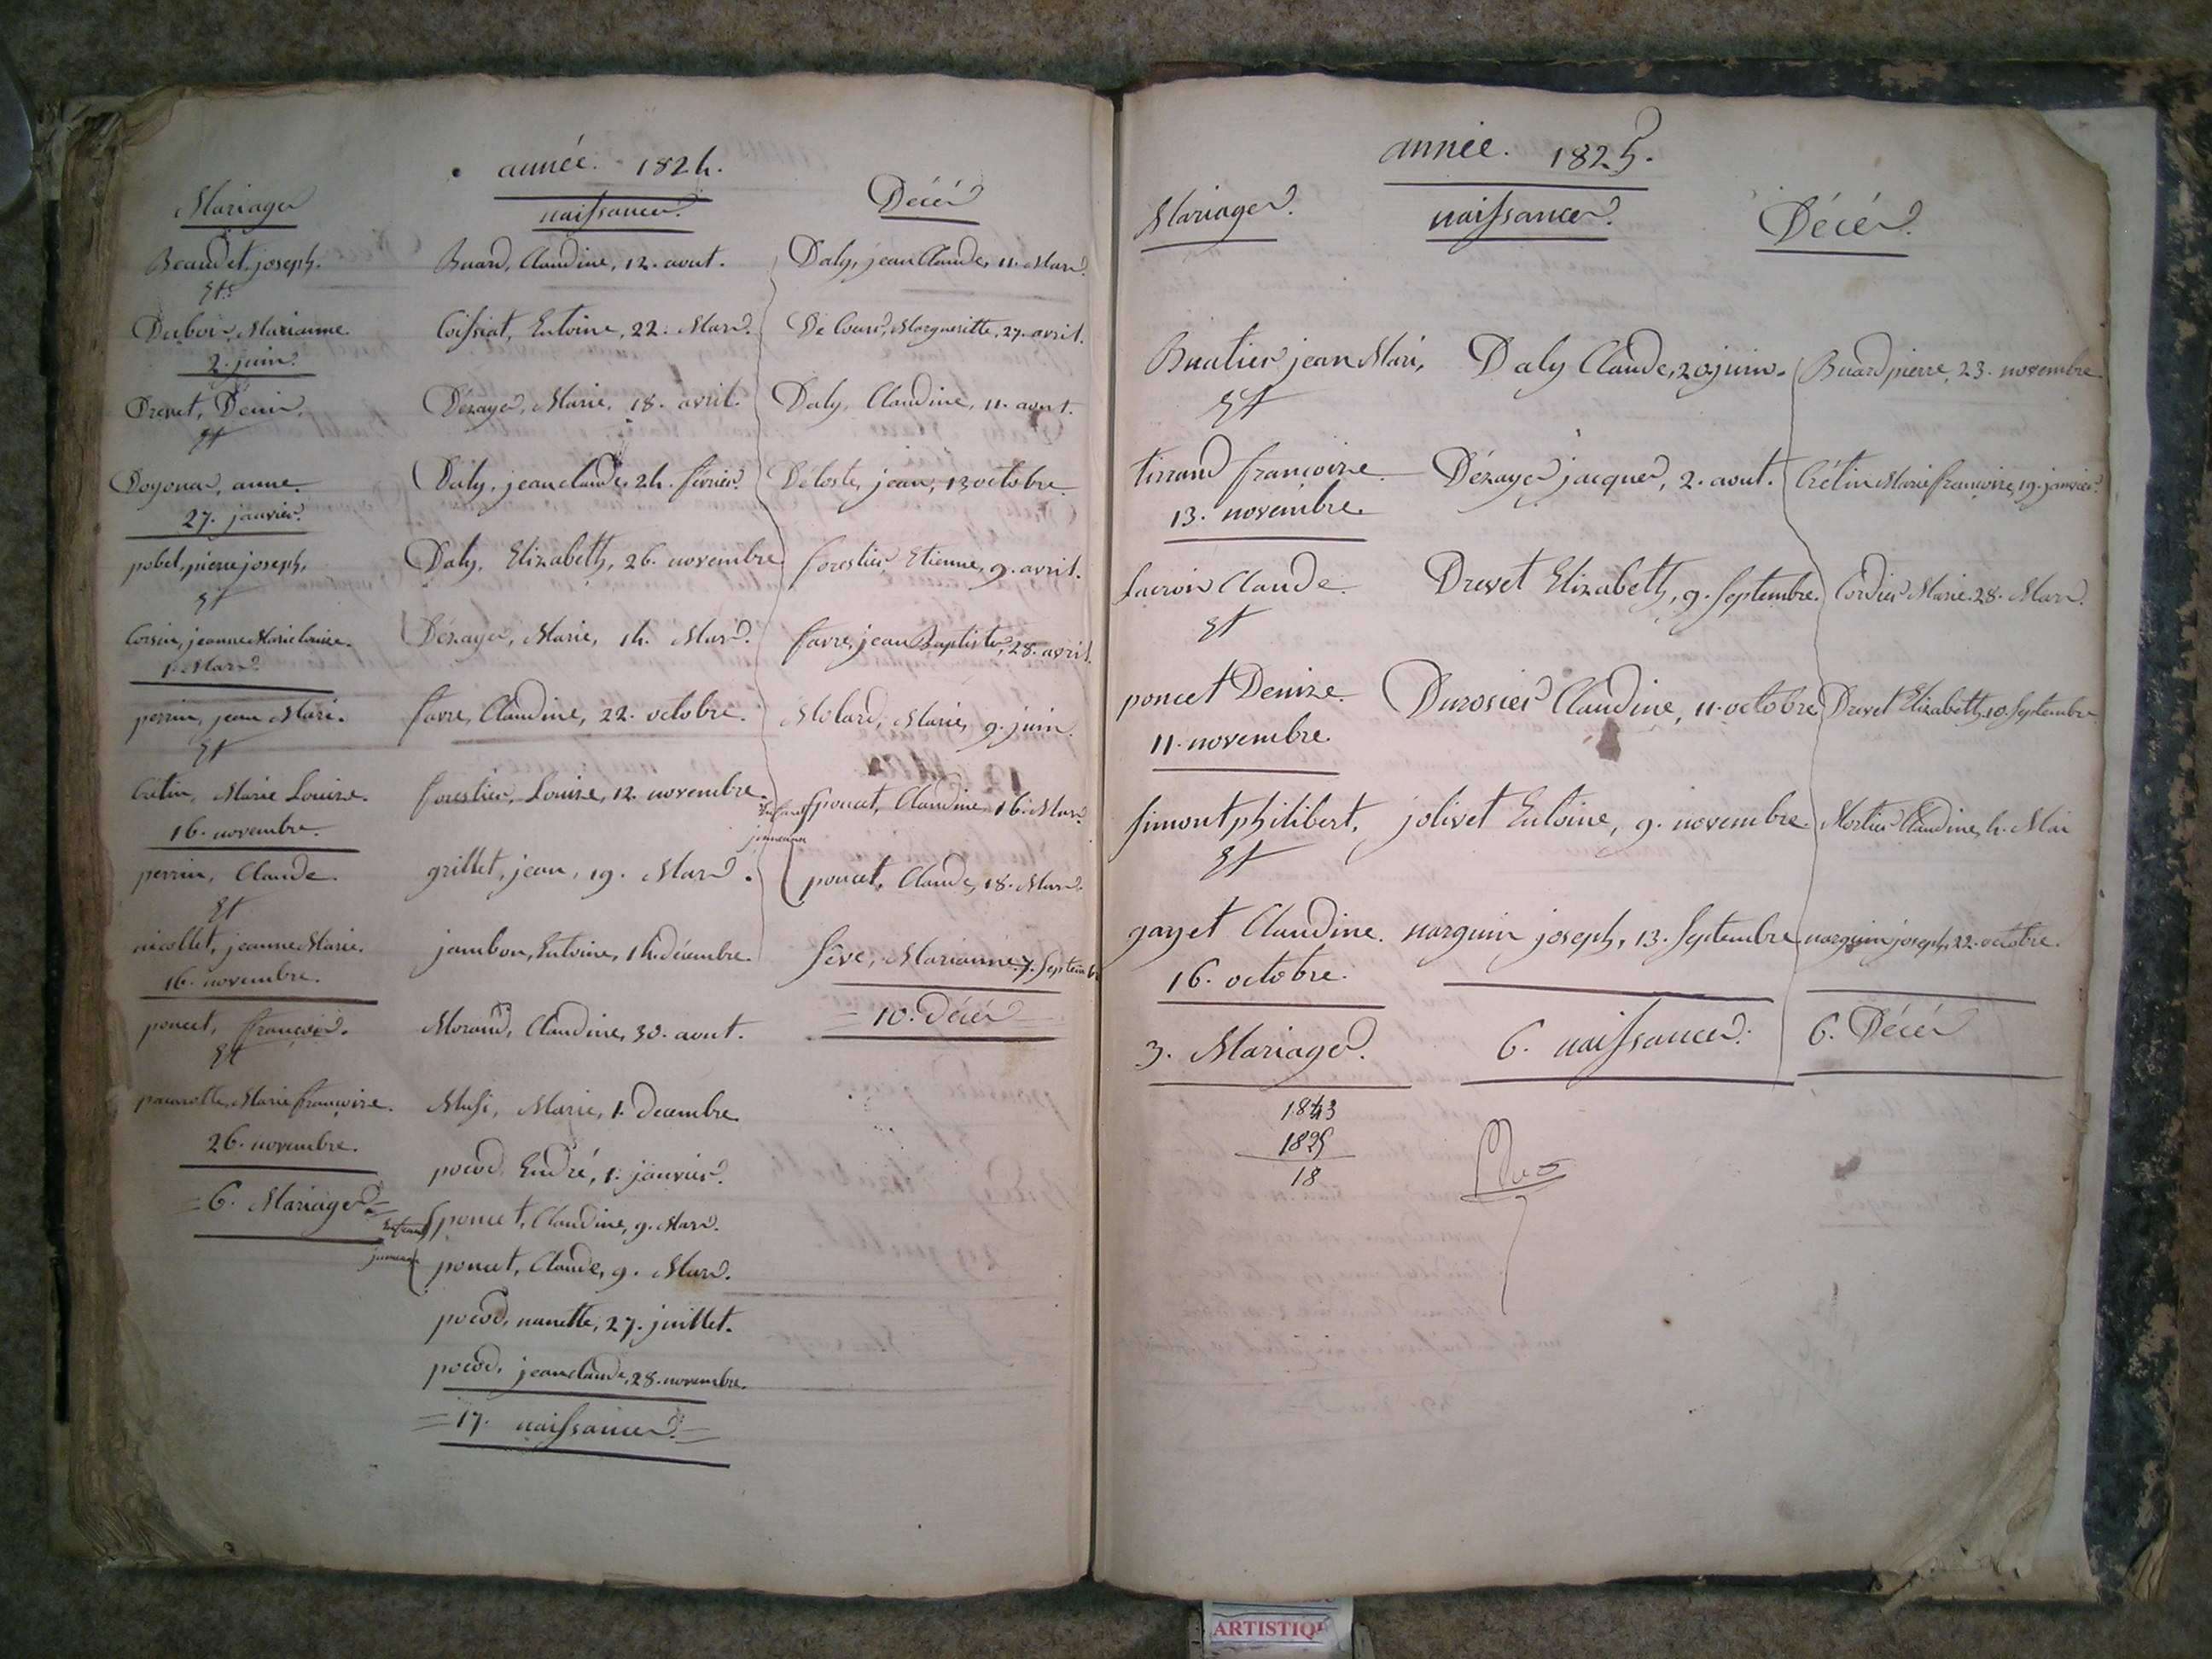 année. 1824.
Mariages
Beaudet, joseph.
Et
Dubois, Marianne.
2. juin.
Drevet, Denis.
Et
Doyonas, anne.
27. janvier.
pobel, pierre joseph,
Et
Corsin, jeanne Marie louise.
1. Mars
perrin, jean Mari.
Et
Crétin, Marie Louise.
16. novembre.
perrin, Claude.
Et
nicollet, jeanne Marie.
16. novembre.
poncet, françois.
Et
Marie françoise.
26. novembre.
=6. Mariages=
naissances
Buard, Claudine, 12. aout.
Coissiat, Entoine, 22. Mars.
Dézayes, Marie, 18. avril.
Daly, jean claude, 24. février.
Daly, Elizabeth, 26. novembre
Dézayes, Marie, 14. Mars.
favre, Claudine, 22. octobre.
forestier, Louise, 12. novembre.
grillet, jean, 19. Mars.
jambon, Entoine, 14. décembre.
Morand, Claudine, 30. aout.
Musi, Marie, 1. decembre
pocod, Endré, 1. janvier.
Enfans jumeaux
poncet, Claudine, 9. Mars.
poncet, Claude, 9. Mars.
pocod, nanette, 27. juillet.
pocod, jean claude, 28. novembre.
=17. naissances=
Décés
Daly, jean Claude, 11. Mars.
De Cours, Margueritte, 27. avril.
Daly, Claudine, 11. aout.
Deloste, jean, 13 octobre.
forestier Etienne, 9. avril.
favre, jean Baptiste, 28. avril.
Molard, Marie, 9. juin.
Enfans jumeaux
poncet, Claudine, 16. Mars
poncet, Claude, 18. Mars.
Sève, Marianne, 7. Septemb
=10. Décés
année. 1825.
Mariages.
Buatier jean Mari,
Et
tirrand françoise.
13. novembre.
Lacroix Claude.
Et
poncet Denise.
11. novembre.
simont philibert,
Et
gayet Claudine.
16. octobre.
3. Mariages.
1843
1825
18
naissances.
Daly Claude, 20. juin.
Dézayes jacques, 2. aout.
Drevet Elizabeth, 9. Septembre.
Durosier Claudine, 11. octobre
jolivet Entoine, 9. novembre.
narguin joseph, 13. Septembre
6. naissances.
Décés.
Buard pierre, 23. novembre
Crétin Marie françoise, 19. janvier.
Cordier Marie. 28. Mars.
Drevet Elizabeth, 10. Septembre
Mortier Claudine, 4. Mai
narguin joseph, 22. octobre.
6. Décés
ARTISTIQ